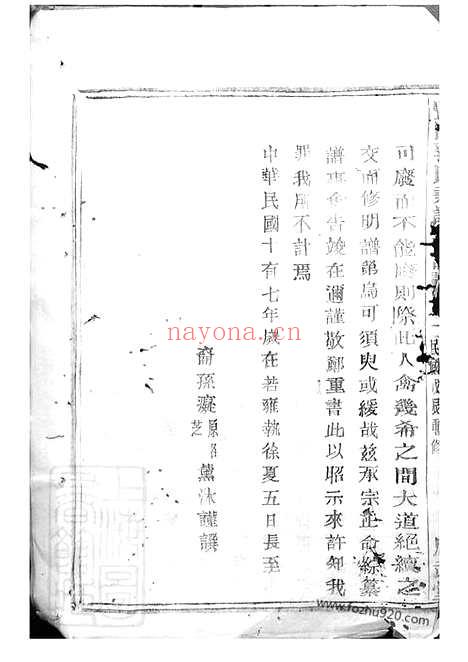 可廢而不能廢則際此人禽幾希之間大道絕續之
交而修明譜牒烏可須臾或緩哉兹承宗正命綜纂
譜事告竣在邇謹敬鄭重書此以昭示來許知我
罪我所不計焉
中華民國十有七年歲在著雍執徐夏五日長至
裔孫 芝 薰沐謹譔
nayona.cn
www.fozhu920.com